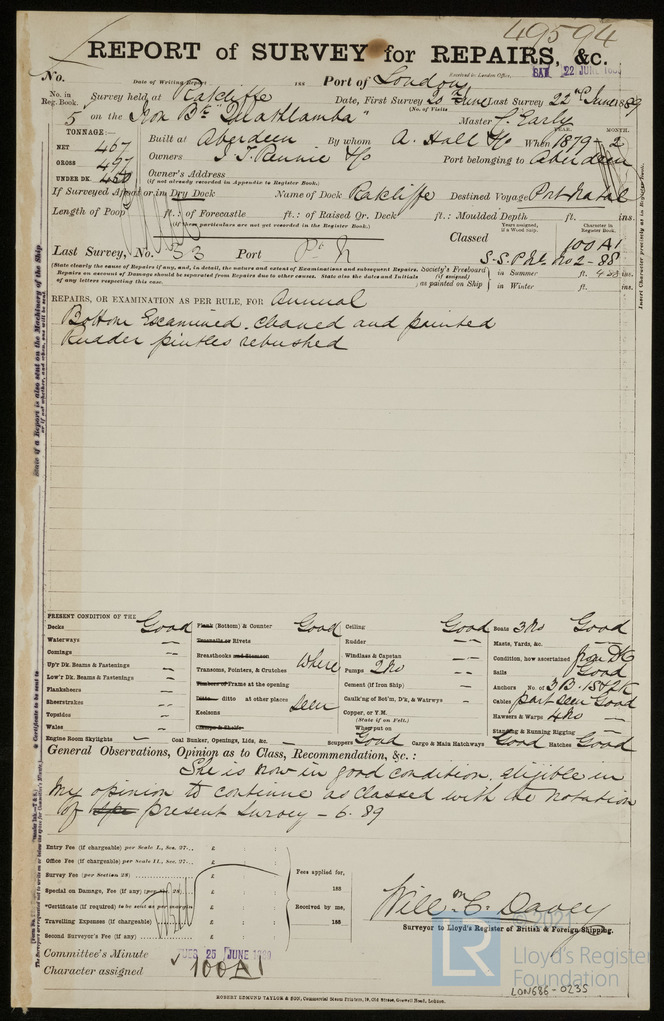 49594
REPORT of SURVEY for REPAIRS, &c.
No. Date of Writing Report 188 Port of London Received in London Office, SAT. 22 JUNE 1889
No. in Reg. Book. Survey held at Ratcliffe Date, First Survey 20th June Last Survey 22nd June 1889
(No. of Visits
5 on the Iron Bk "Quathlamba" Master J. Early
TONNAGE:— YEAR. MONTH.
NET 467 Built at Aberdeen By whom A. Hall & Co When 1879 - 2
GROSS 497 Owners J. T. Rennie & Co Port belonging to Aberdeen
UNDER DK. 460 Owner's Address
(If not already recorded in Appendix to Register Book.)
If Surveyed Afloat or in Dry Dock Name of Dock Ratcliffe Destined Voyage Port Natal
Length of Poop ft.: of Forecastle ft.: of Raised Qr. Deck ft.: Moulded Depth ft. ins.
(If these particulars are not yet recorded in the Register Book.)
Years assigned, if a Wood ship. Character in Register Book.
Classed 100A1
Last Survey, No. 53 Port S.S. No 2-88
(State clearly the cause of Repairs if any, and, in detail, the nature and extent of Examinations and subsequent Repairs.
Repairs on account of Damage should be separated from Repairs due to other causes. State also the dates and Initials
of any letters respecting this case.
Society's Freeboard (if assigned) as painted on Ship in Summer ft. ins.
in Winter ft. ins.
REPAIRS, OR EXAMINATION AS PER RULE, FOR Annual
Bottom Examined. cleaned and painted
Rudder pintles rebushed
PRESENT CONDITION OF THE
Decks Good
Waterways
Comings
Upr Dk. Beams & Fastenings
Lowr Dk. Beams & Fastenings
Planksheers
Sheerstrakes
Topsides
Wales
Engine Room Skylights
Plank (Bottom) & Counter Good
Treenails or Rivets
Breasthooks and Stemson
Transoms, Pointers, & Crutches where
Timbers of Frame at the opening
Ditto ditto at other places seen
Keelsons
Clamps & Shelfs
Coal Bunker, Openings, Lids, &c.
Scuppers Good
Ceiling Good
Rudder
Windlass & Capstan
Pumps 2 No
Cement (if Iron Ship)
Caulkng of Botm, Dk, & Watrwys
Copper, or Y.M.
(State if on Felt.)
When put on
Cargo & Main Hatchways Good
Boats 3 No Good
Masts, Yards, &c.
Condition, how ascertained from Dk
Sails Good
Anchors No. of 3B. 1S & 2K
Cables part seen Good
Hawsers & Warps 4 No
Standing & Running Rigging
Hatches Good
General Observations, Opinion as to Class, Recommendation, &c.:
She is now in good condition, eligible in
my opinion to continue as classed with the notation
of present Survey - 6.89
Entry Fee (if chargeable) per Scale I., Sec. 27 £
Office Fee (if chargeable) per Scale II., Sec. 27 £
Survey Fee (per Section 28) £
Special on Damage, Fee (if any) (per Sec. 28) £
*Certificate (if required) to be sent as per margin £
Travelling Expenses (if chargeable) £
Second Surveyor's Fee (if any) £
Fees applied for,
188
Received by me,
188
Willm C. Davey
Surveyor to Lloyd's Register of British & Foreign Shipping.
Committee's Minute TUES 25 JUNE 1889
Character assigned 100A1
ROBERT EDMUND TAYLOR & SON, Commercial Steam Printers, 19, Old Street, Goswell Road, London.
© 2021
LR
Lloyd's Register
Foundation
LON686-0235